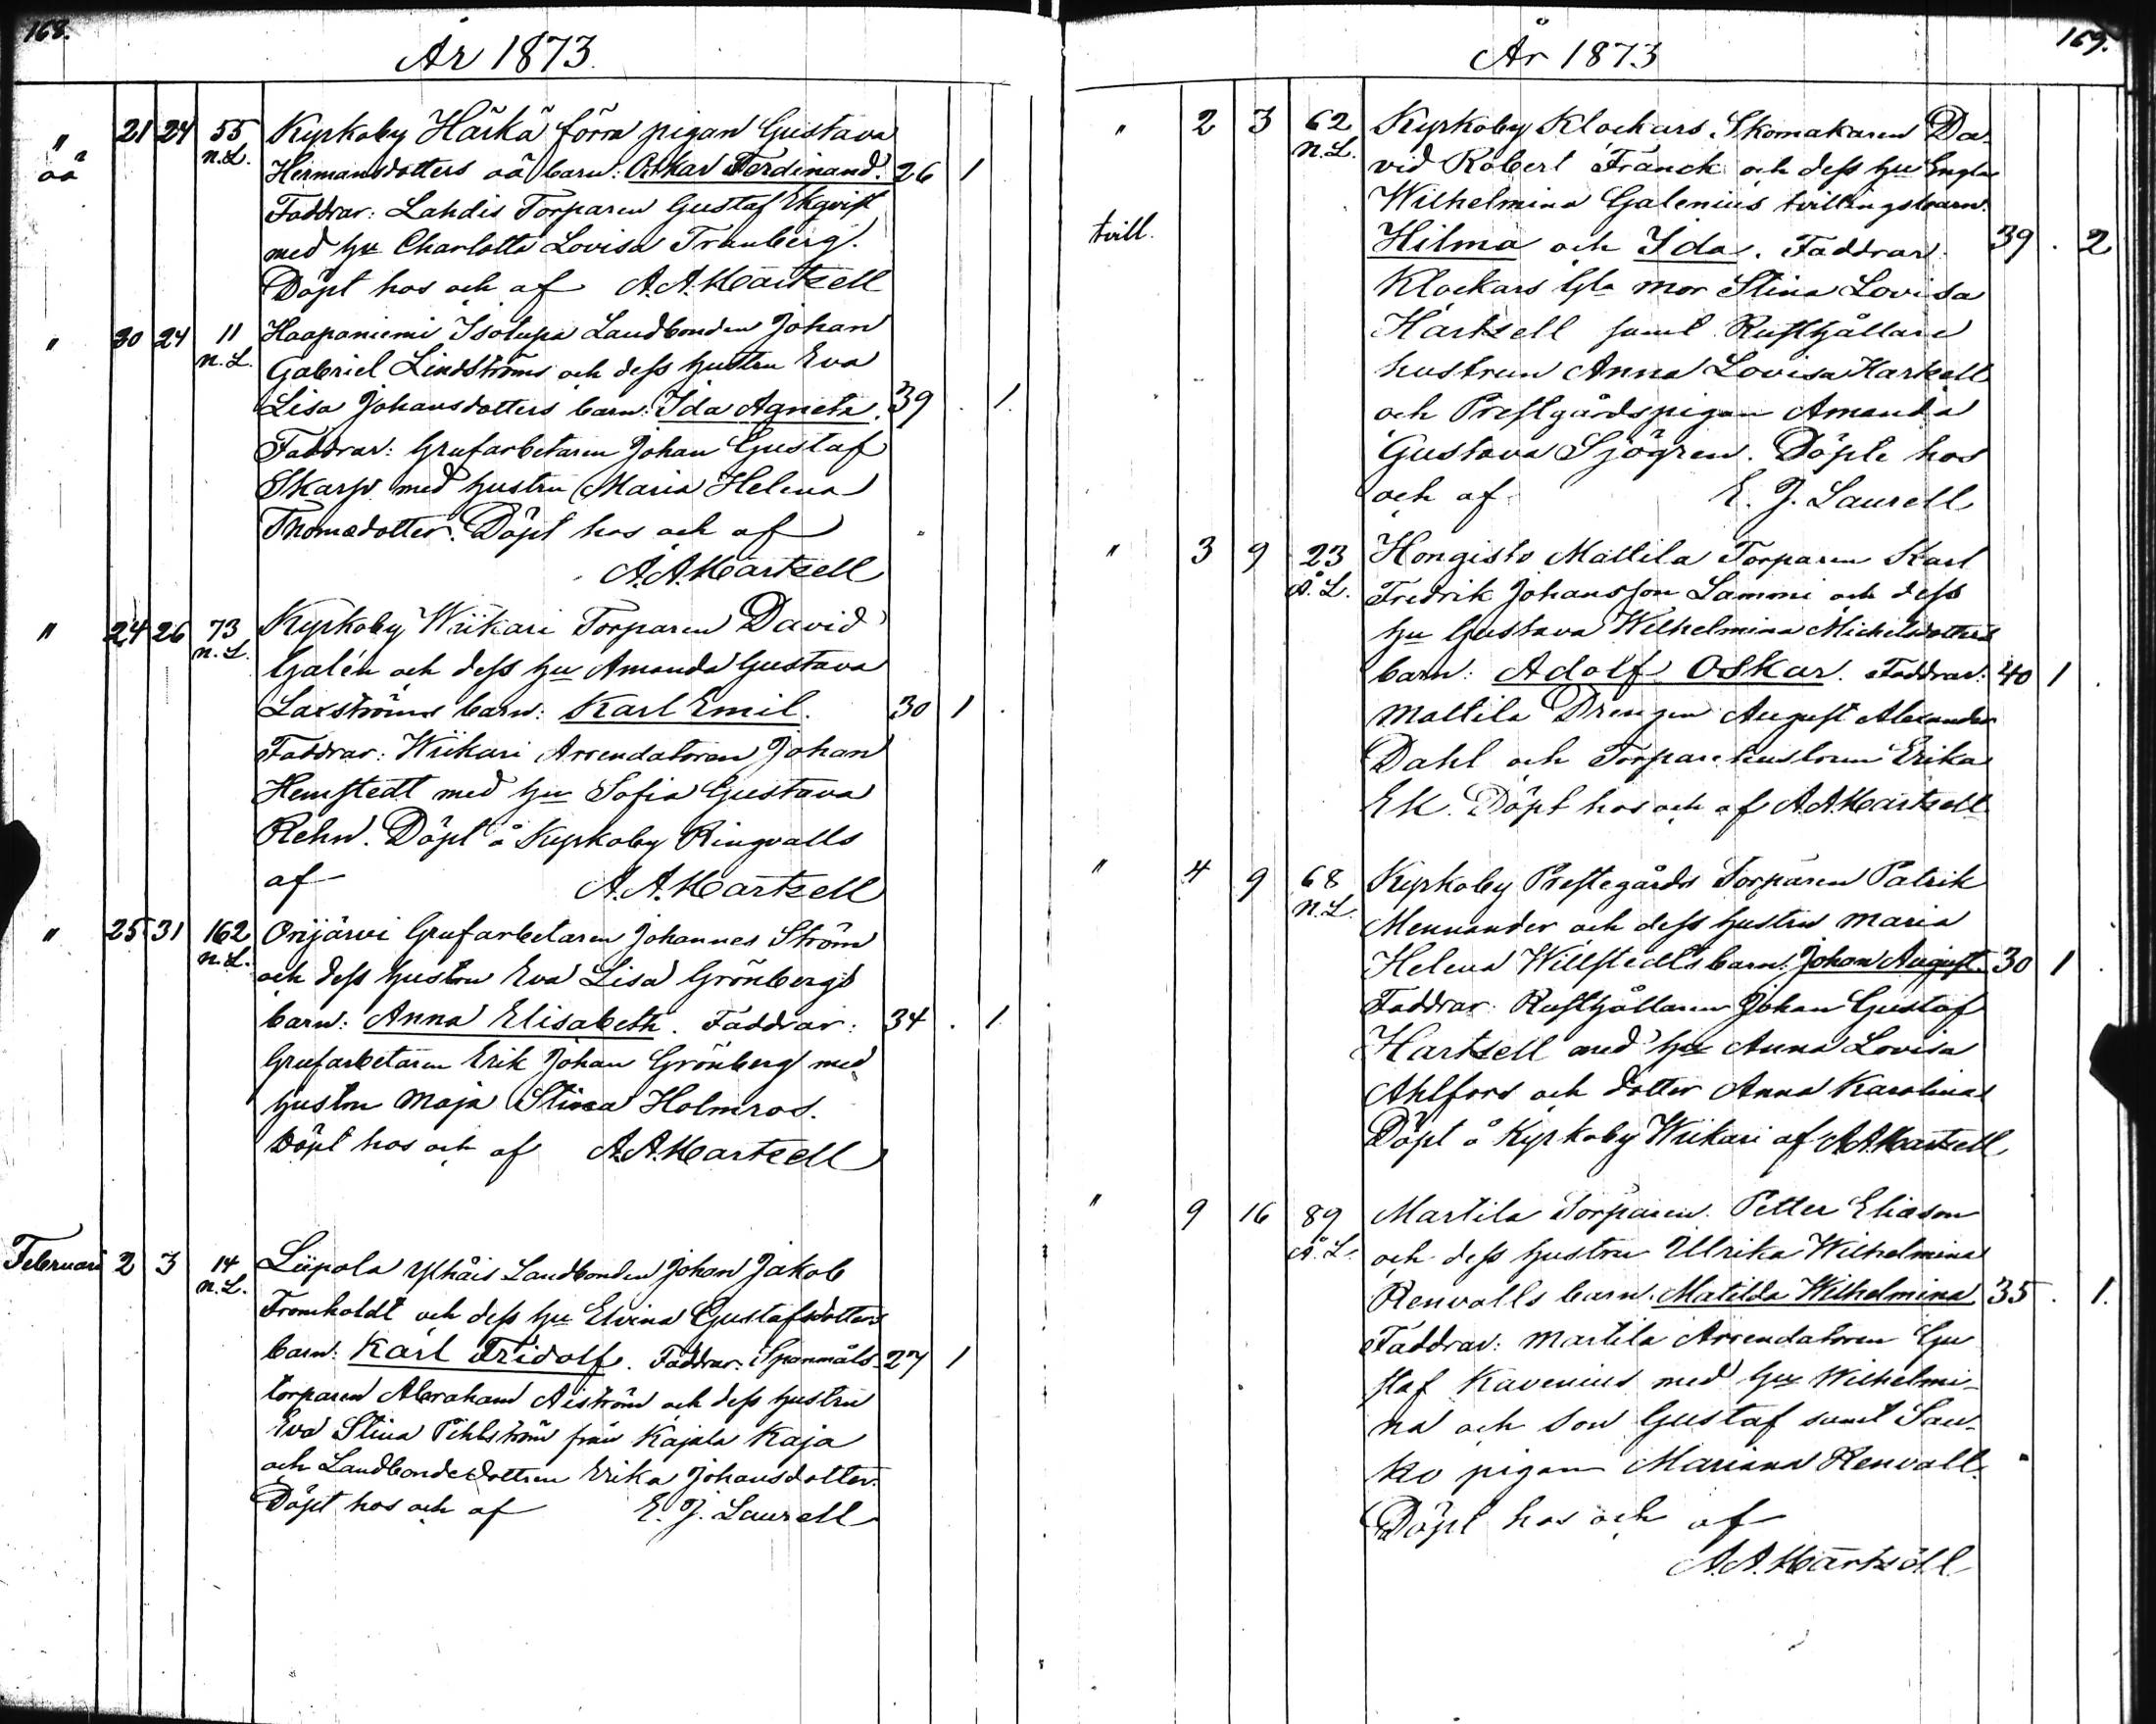 168.
År 1873.
" 21 24 55 Kyrkoby Härkä förra pigan Gustava
oä n.L. Hermansdotters oä barn: Oskar Ferdinand. 26 1
Faddrar: Lahdis Torparen Gustaf Ekqvist
med hu Charlotta Lovisa Tranberg.
Döpt hos och af A.A. Hartzell
" 30 24 11 Haapaniemi Isotupa Landbonden Johan
n.L. Gabriel Lindströms och dess hustru Eva
Lisa Johansdotters barn: Ida Agneta. 39 . 1.
Faddrar: Grufarbetaren Johan Gustaf
Skarp med hustru Maria Helena
Thomasdotter. Döpt hos och af
A.A. Hartzell
" 24 26 73 Kyrkoby Wiikari Torparen David
n.L. Galén och dess hu Amanda Gustava
Laxströms barn: Karl Emil. 30 1 .
Faddrar: Wiikari Arrendatoren Johan
Hemstedt med hu Sofia Gustava
Rehn. Döpt å Kyrkoby Ringvalls
af A.A. Hartzell
" 25 31 162 Orijärvi Grufarbetaren Johannes Ström
n.L. och dess hustru Eva Lisa Grönbergs
barn: Anna Elisabeth. Faddrar: 34 . 1
Grufarbetaren Erik Johan Grönberg med
hustru Maja Stina Holmros.
Döpt hos och af A.A. Hartzell
Februari 2 3 14 Liipola Landbonden Johan Jakob
n.L. Fromholdt och dess hu Elvina Gustafsdotters
barn: Karl Fridolf. Faddrar: Spanmåls- 27 1
torparen Abraham Aiström och dess hustru
Eva Stina Pihlström från Kajala Kaja
och Landbondedottren Erika Johansdotter.
Döpt hos och af E. J. Laurell
169.
År 1873
" 2 3 62 Kyrkoby Klockars Skomakaren Da-
n.L. vid Robert Franck och dess hu Engla
Wilhelmina Galenius tvillingsbarn:
tvill. Hilma och Ida. Faddrar 39 . 2
Klockars Gla mor Stina Lovisa
Hartzell samt Rusthållare
hustrun Anna Lovisa Hartzell
och Prestgårdspigan Amanda
Gustava Sjögren. Döpte hos
och af E. J. Laurell
" 3 9 23 Hongisto Mattila Torparen Karl
Å.L. Fredrik Johansson Lammi och dess
hu Gustava Wilhelmina Michelsdotters
barn: Adolf Oskar. Faddrar: 40 1 .
Mattila Drengen August Alexander
Dahl och Torparehustrun Erika
Ek. Döpt hos och af A.A. Hartzell
" 4 9 68 Kyrkoby Prestegårds Torparen Patrik
n.L. Mennander och dess hustru Maria
Helena Willstedts barn: Johan August. 30 1 .
Faddrar: Rusthållaren Johan Gustaf
Hartzell med hu Anna Lovisa
Ahlfors och dotter Anna Karolina
Döpt å Kyrkoby Wiikari af A.A. Hartzell
" 9 16 89 Martila Torparen Petter Eliason
Å.L. och dess hustru Ulrika Wilhelmina
Renvalls barn: Matilda Wilhelmina 35 . 1.
Faddrar: Martila Arrendatoren Gu
staf Kavenius med hu Wilhelmi-
na och son Gustaf samt Sau-
ko pigan Mariana Renvall.
Döpt hos och af
A.A. Hartzell